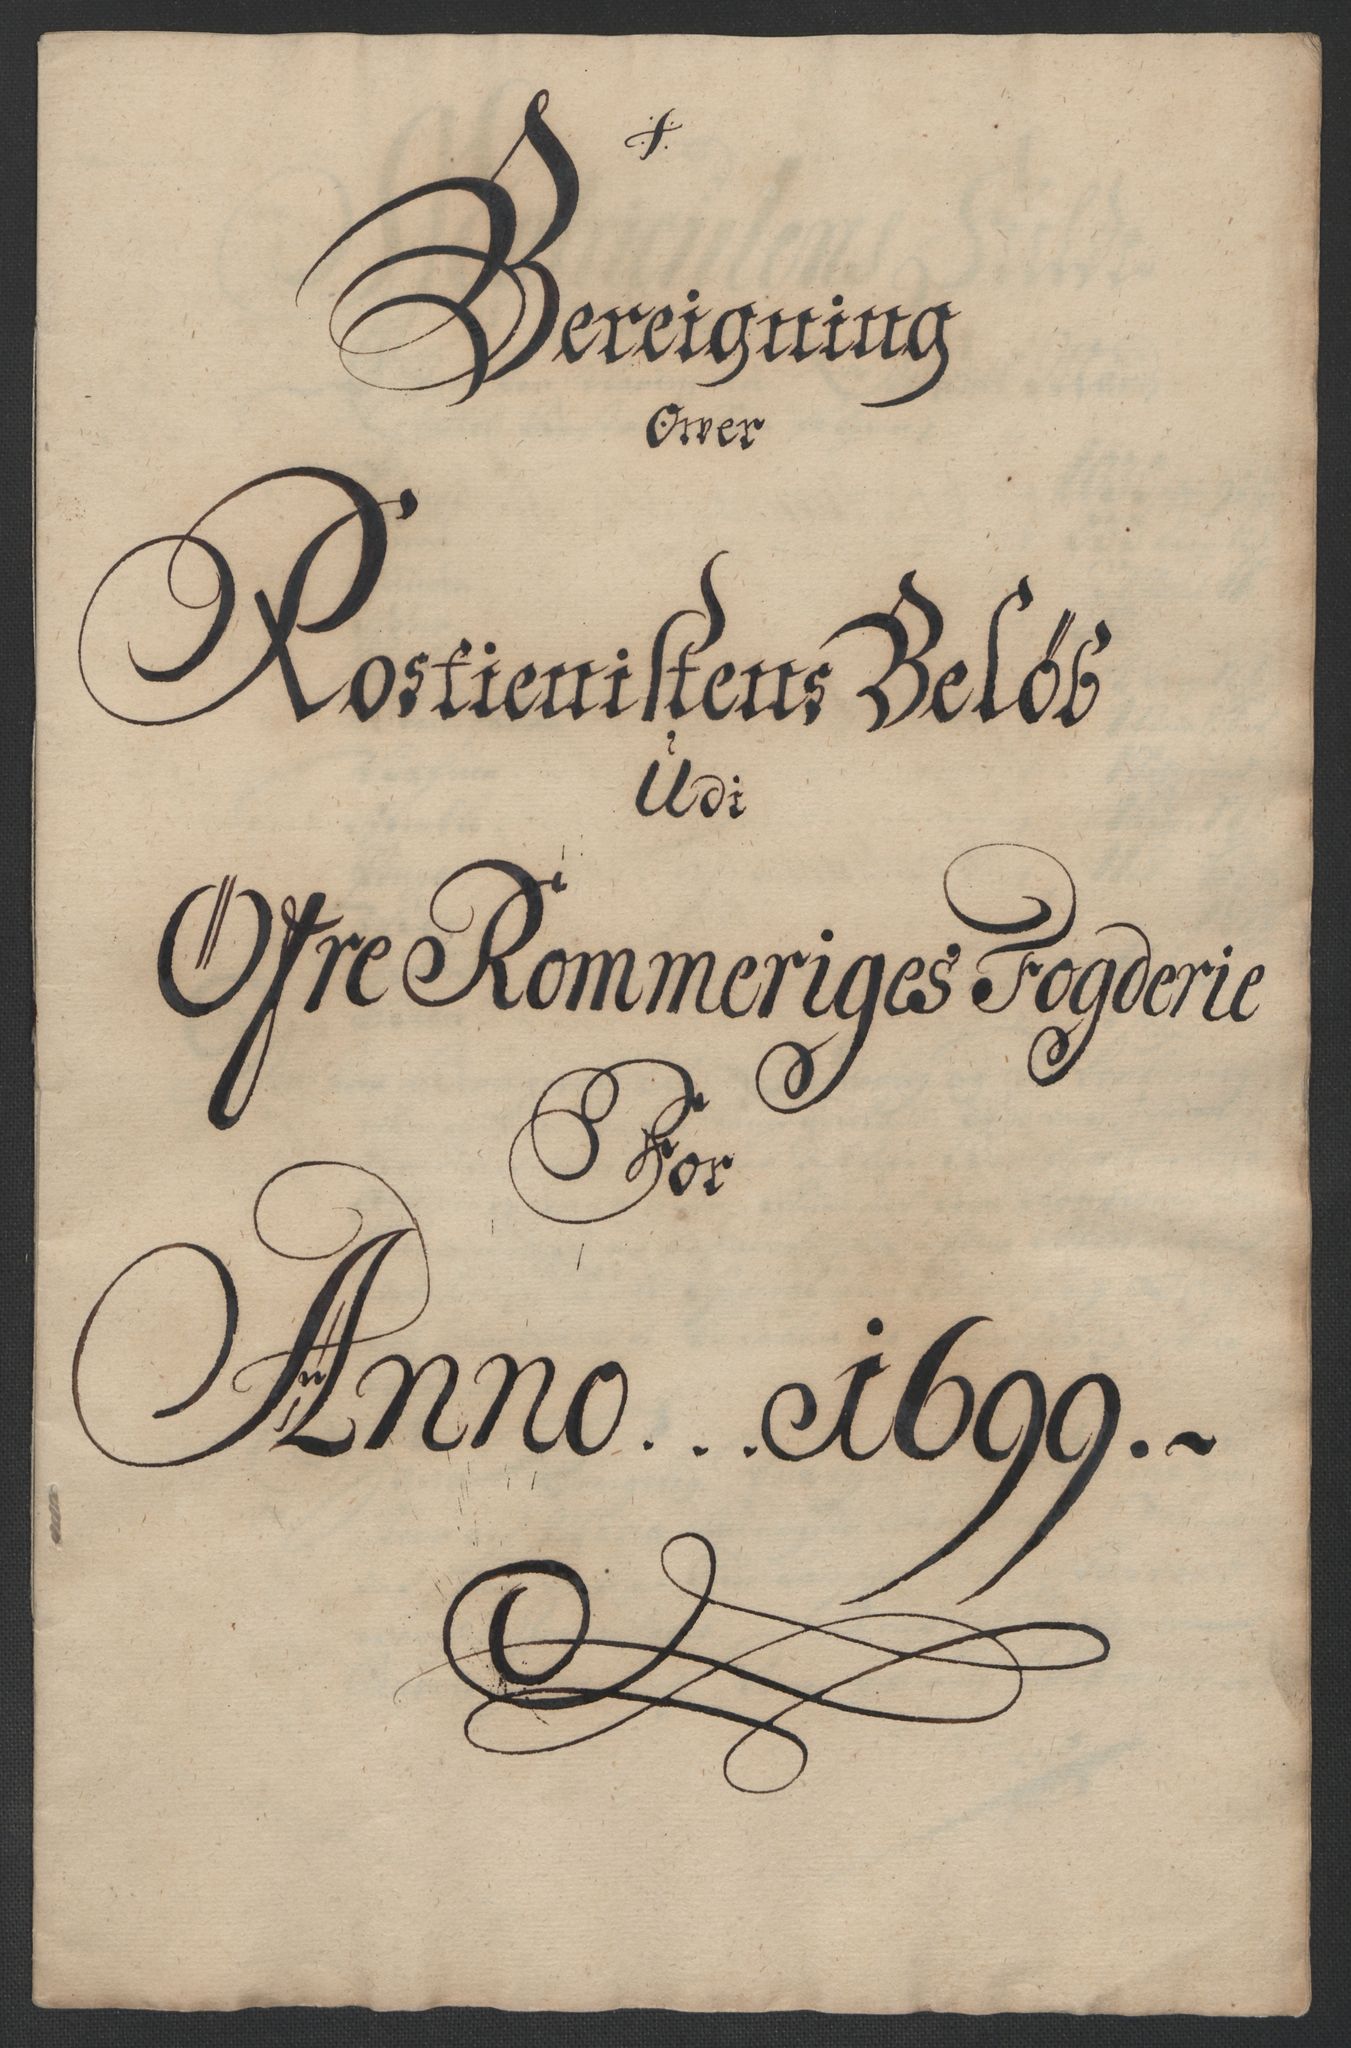 Bereigning
Ower
Rostienistens Belöb
Udi
Öfre Rommeriges Fogderie
For
Anno . . . 1699. ~